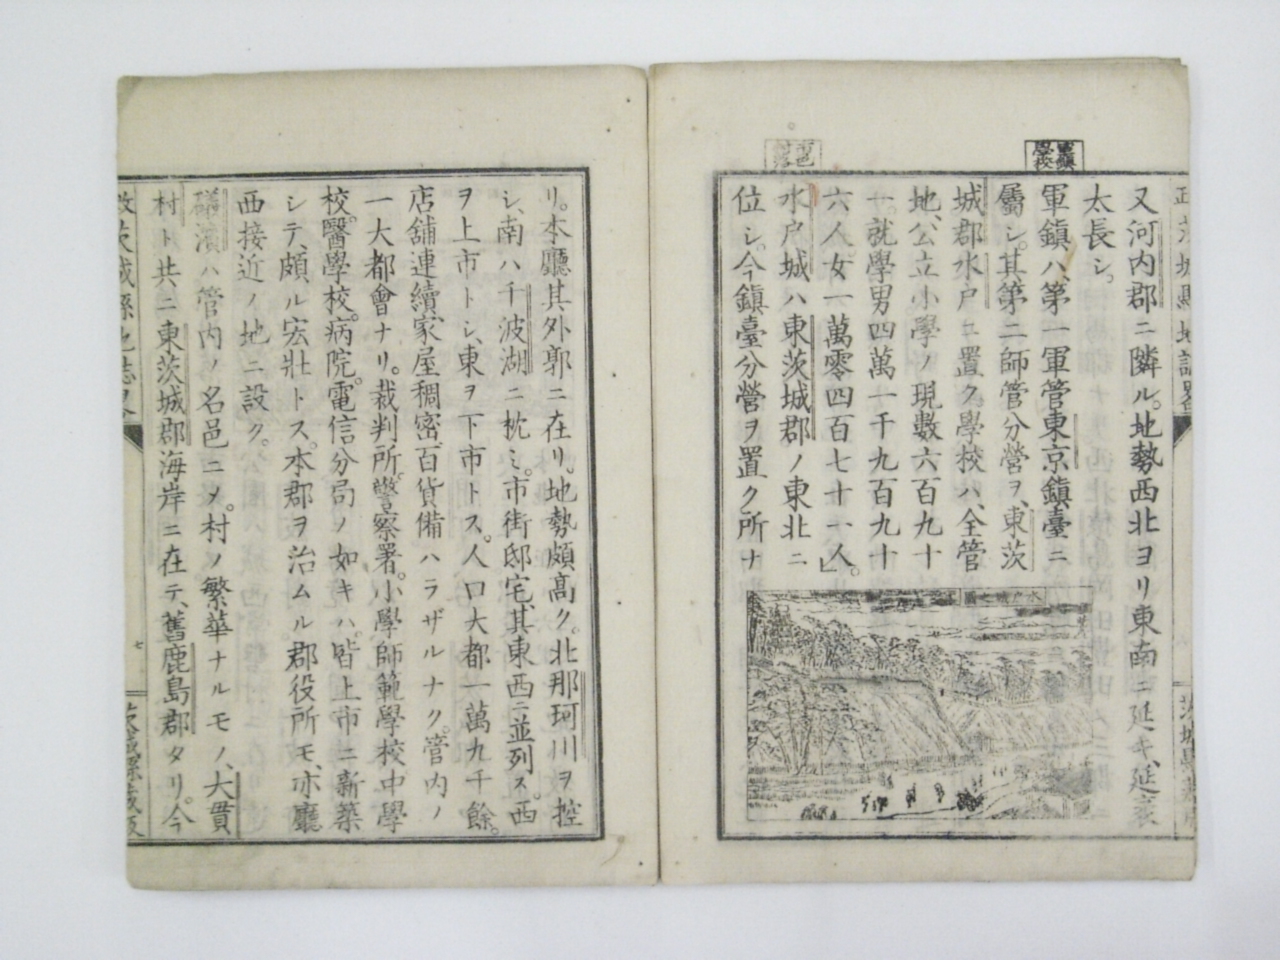 軍鎭
學校
又河内郡ニ隣ル。地勢西北ヨリ東南ニ延キ、延袤
太長シ。
軍鎭ハ、第一軍管東京鎭臺ニ
屬シ。其第二師管分營ヲ、東茨
城郡水戸ニ置ク學校ハ、全管
地、公立小學ノ現數六百九十
一。就學男四萬一千九百九十
六人。女一萬零四百七十一人。」
水戸城ハ東茨城郡ノ東北ニ
位シ。今鎭臺分營ヲ置ク所ナ
水戸城之圖
リ。本廳其外郭ニ在リ。地勢頗高ク。北那珂川ヲ控
シ、南ハ千波湖ニ枕ミ。市街邸宅、其東西ニ並列ス。西
ヲ上市トシ、東ヲ下市トス。人口大都一萬九千餘。
店舗連續、家屋稠密、百貨備ハラザルナク。管内ノ
一大都會ナリ。裁判所。警察署。小學師範學校。中學
校。醫學校。病院。電信分局ノ如キハ。皆上市ニ新築
シテ、頗ル宏壯トス。本郡ヲ治ムル郡役所モ、亦廳
西接近ノ地ニ設ク。
礒濱ハ管内ノ名邑ニメ。村ノ繁華ナルモノ、大貫
村ト共ニ東茨城郡海岸ニ在テ、舊鹿島郡タリ。今
七